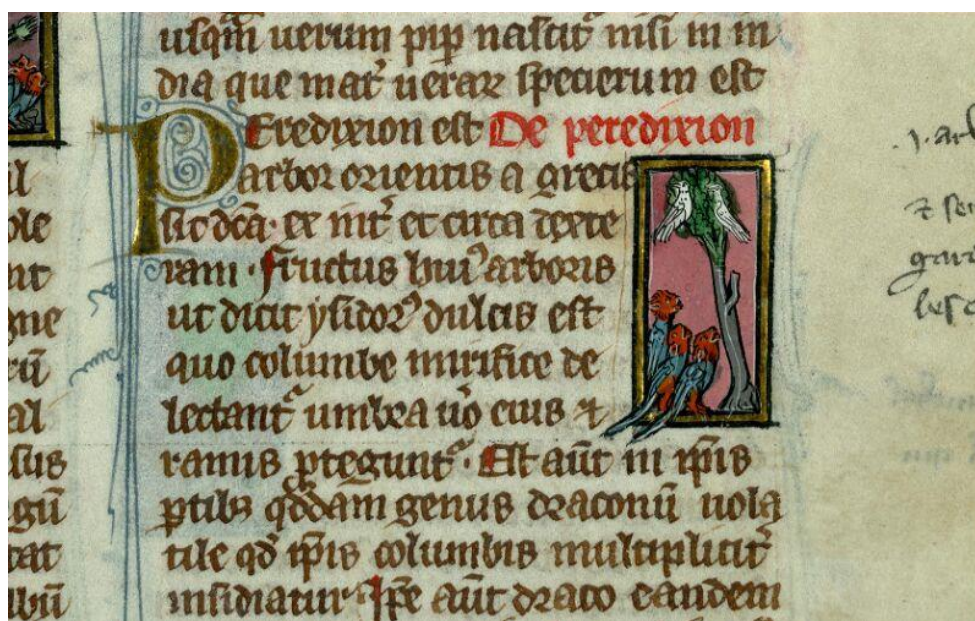 usqm uerum pip nascit nisi in in
dia que mat uerar specierum est
Peredixion est De peredixion
arbor orientis a grecis
sic dca. ex int et circa dexte
ram. fructus hui arboris
ut dicit ysidor dulcis est
quo columbe mirifice de
lectant umbra uo eius et
ramis ptegunt. Est aut in ipis
ptib qddam genus draconu uola
tile qd ipis columbis multiplicit
insidiatur. Ipe aut draco eandem